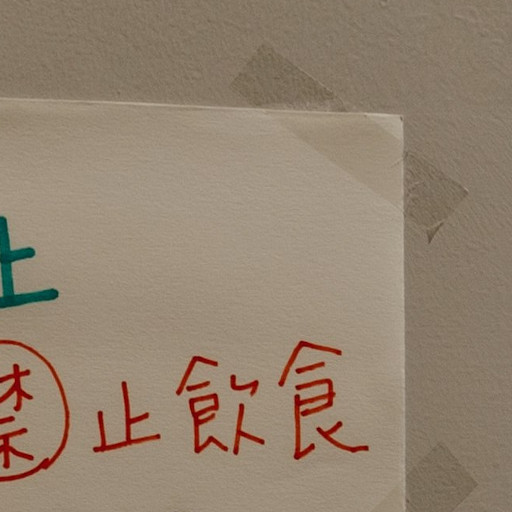 止
禁止飲食